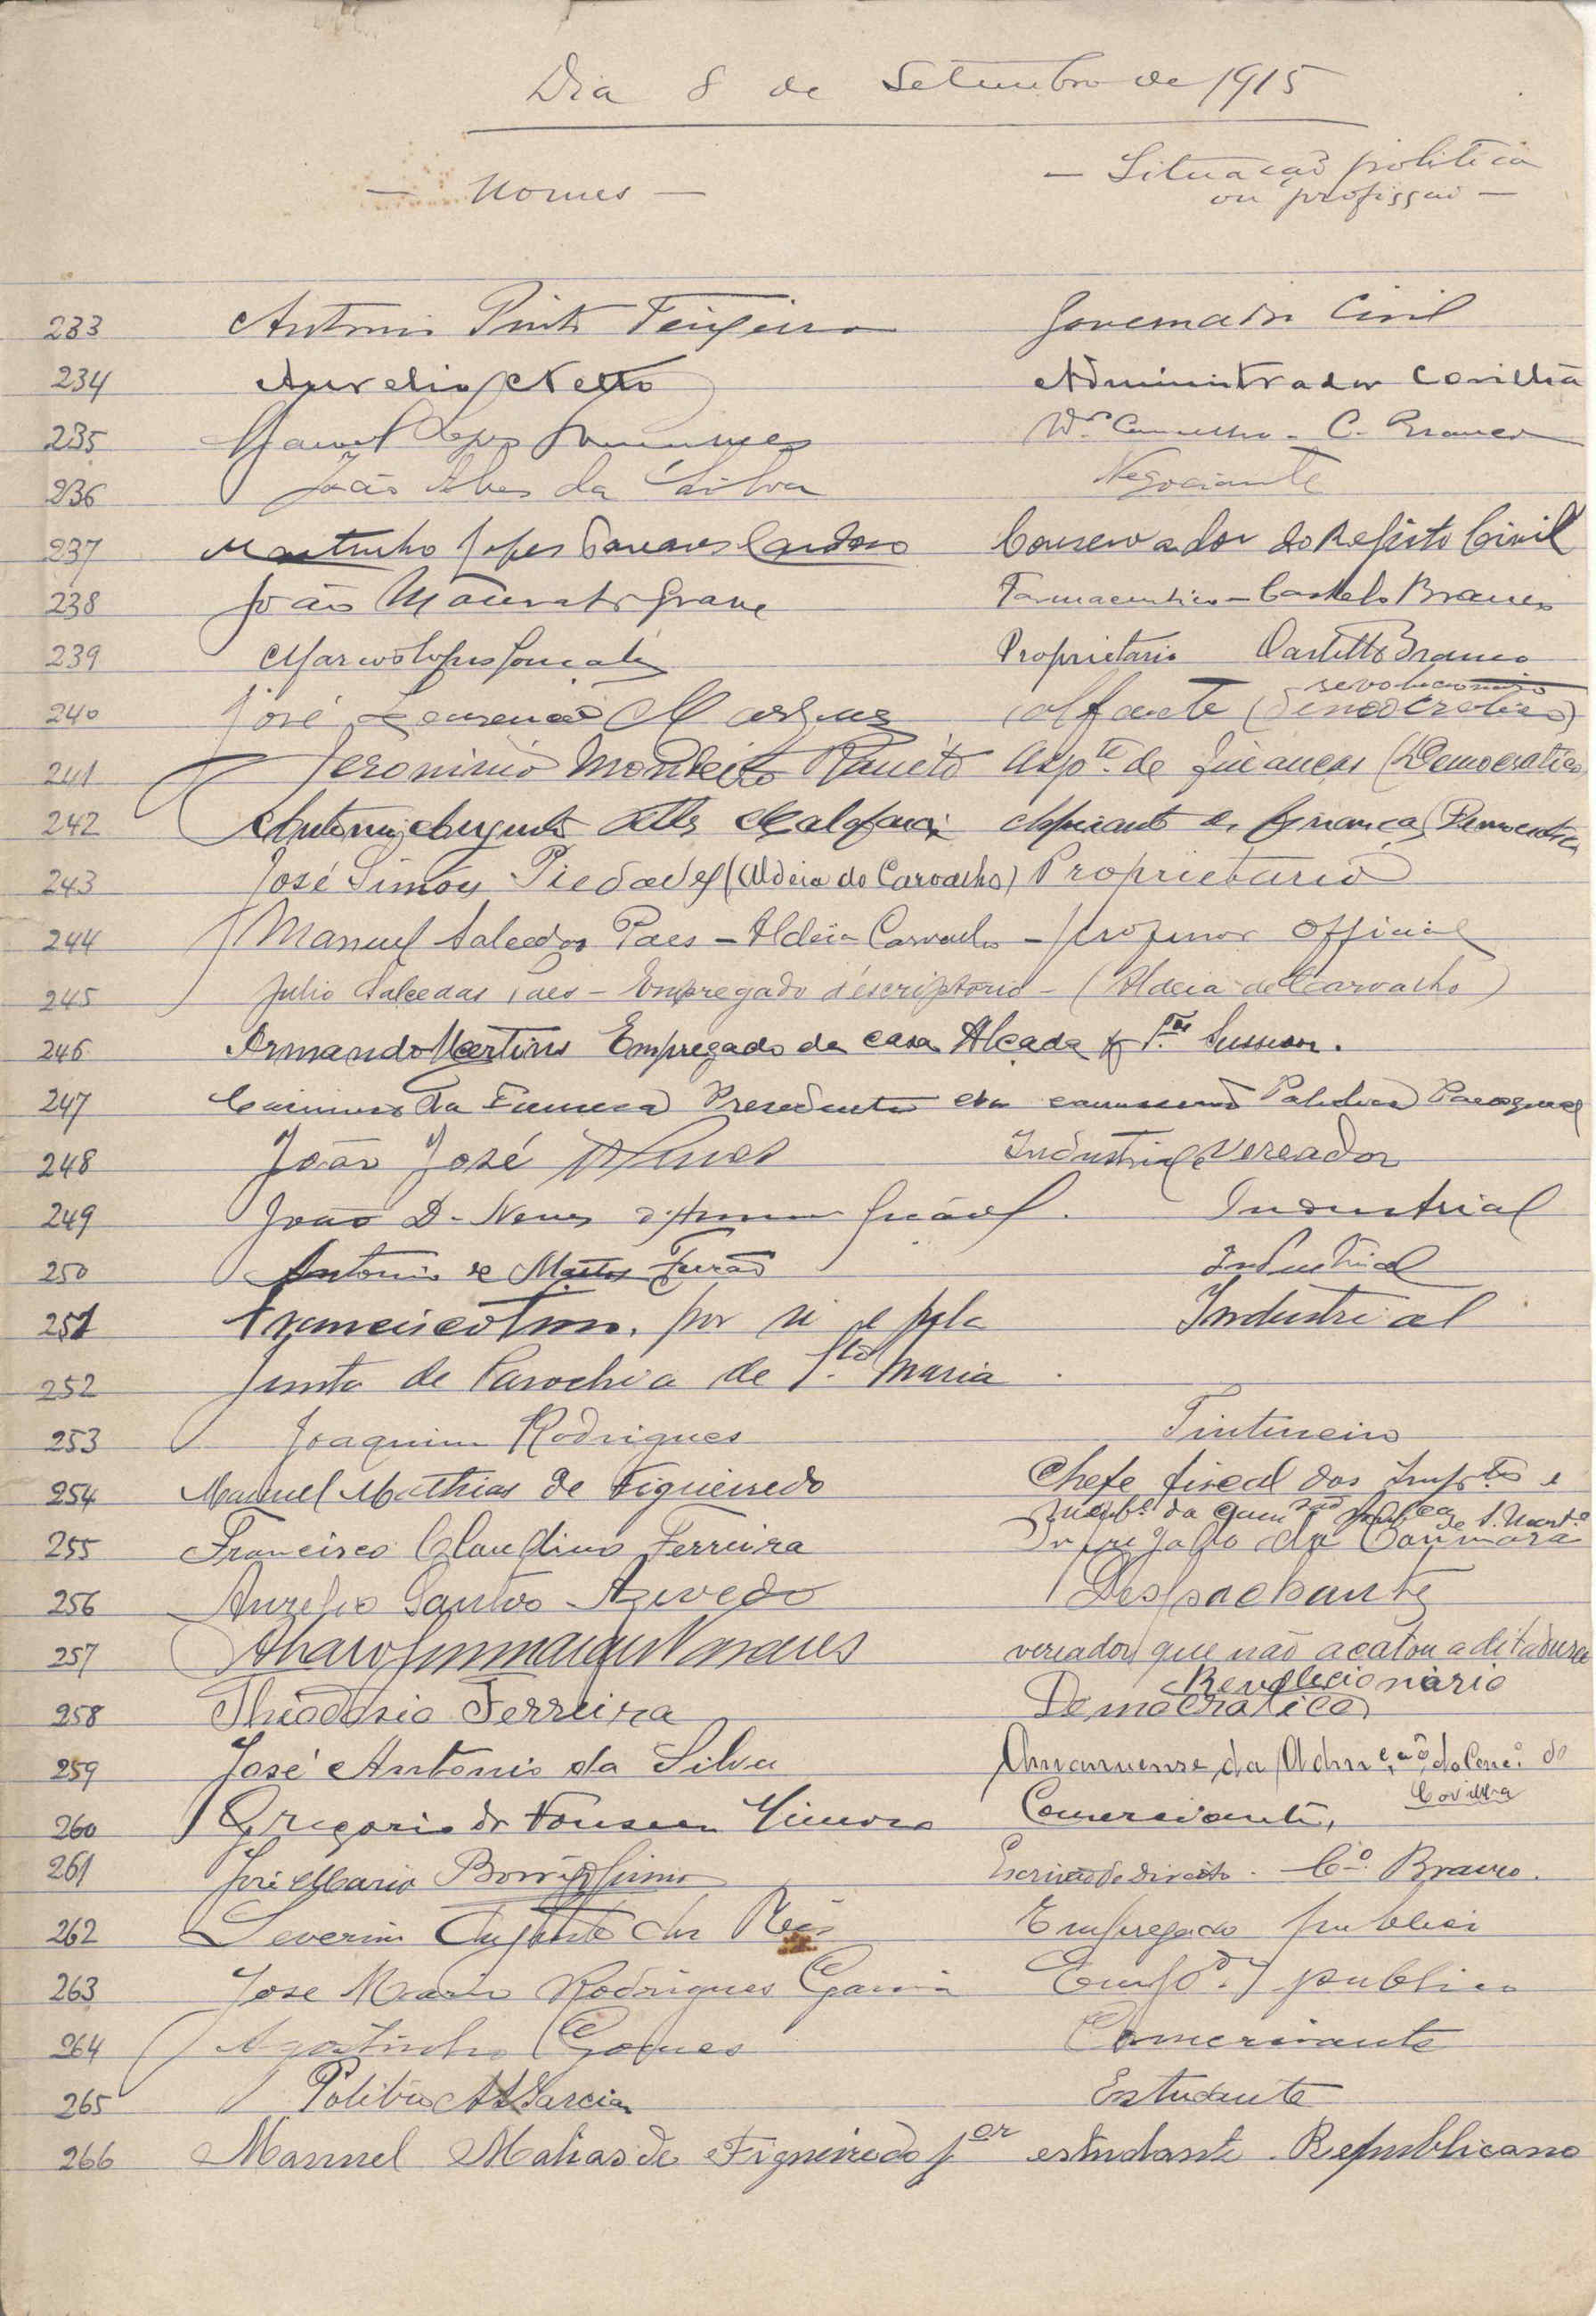 Dia 8 de Setembro de 1915
— Nomes —
— Situação politica
ou profissão —
233 Antonio Pinto Teixeira Governador Civil
234 Aurelio Netto Administrador Covilhã
235 Manuel Lopes C. Branco
236 João Alves da Silva Negociante
237 Martinho Lopes Tavares Cardoso Conservador do Registo Civil
238 João Mourato Grave Farmaceutico - Castelo Branco
239 Marcos Lopes Proprietario Castello Branco
240 José Lourenço Marques Alfaiate (Democratico)
revolucionario
241 Jeronimo Monteiro Asp.te de Finanças (Democratico)
242 Antonio Augusto Aspirante de Finanças Democratico
243 José Simões Piedade (Aldeia do Carvalho) Proprietario
244 Manuel Salcedas Paes - Aldeia Carvalho - professor official
245 Julio Salcedas Paes - Empregado d'escriptorio - (Aldeia de Carvalho)
246 Armando Martins Empregado da casa Alçada &
247 da Presidente
248 João José Industrial e Vereador
249 João D. Neves Industrial
250 Antonio de Mattos Ferrão Industrial
251 por si e pela Industrial
252 Junta de Parochia de S.ta Maria
253 Joaquim Rodrigues Tintureiro
254 Manuel Mathias de Figueiredo Chefe fiscal dos Imp.tos e
255 Francisco Claudino Ferreira Empregado da Camara
256 Aurelio Santos Azevedo Despachante
257 vereador que não acatou a ditadura
Revolucionario
258 Theodosio Ferreira Democratico
259 José Antonio da Silva Amanuense da Adm.e,ão do Conc.o da
Covilhã
260 Gregorio da Fonseca Comerciante,
261 José Maria Escrivão de Direito. C.o Branco.
262 Severino Augusto dos Reis Empregado publico
263 José Maria Rodrigues Garcia Emp.do publico
264 Agostinho Gomes Comerciante
265 Garcia Estudante
266 Manuel Matias de Figueiredo J.or estudante Republicano